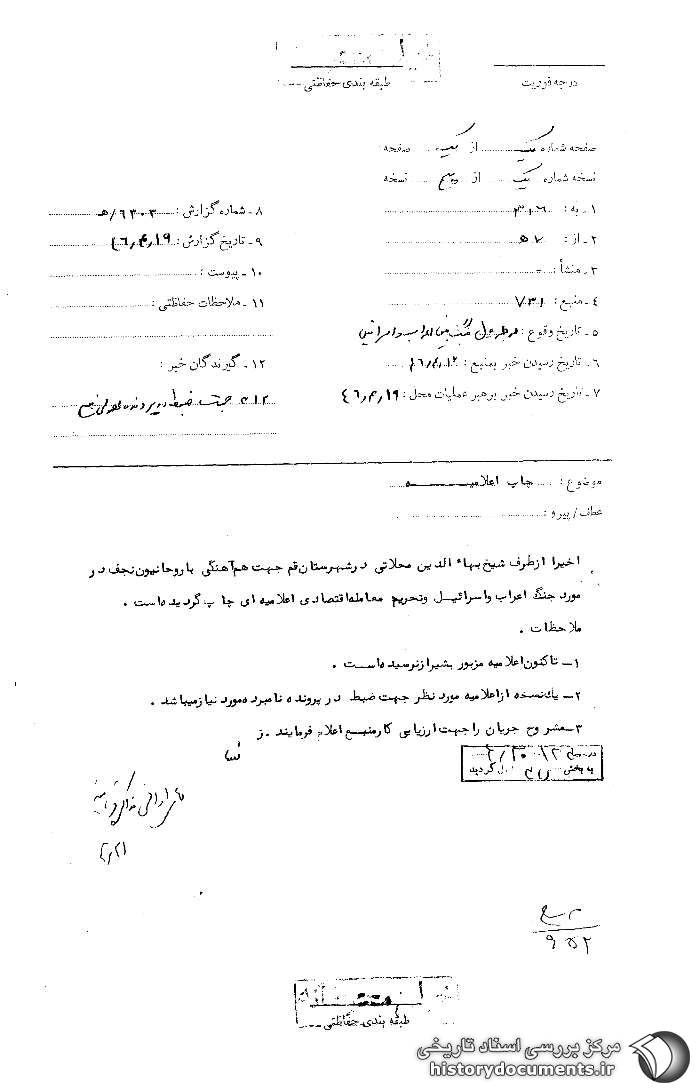 طبقه بندی حفاظتی
درجه فوریت
صفحه شماره یک از یک صفحه
نسخه شماره یک از پنج نسخه
۱ - به: ۳۱۶
۲ - از: ۵۷
۳ - منشأ: -
۴ - منبع: ۷۳۱
۵ - تاریخ وقوع: در طول جنگ بین اعراب و اسرائیل
۶ - تاریخ رسیدن خبر بمنبع:
۷ - تاریخ رسیدن خبر برهبر عملیات محل: ۴۶٫۴٫۱۹
۸ - شماره گزارش: ۶۳۰۳/ھ
۹ - تاریخ گزارش: ۴۶٫۴٫۱۹
۱۰ - پیوست:
۱۱ - ملاحظات حفاظتی:
۱۲ - گیرندگان خبر:
۳۱۲ جهت ضبط در پرونده
موضوع: چاپ اعلامیه
عطف/پیرو:
اخیرا ازطرف شیخ بهاء الدین محلاتی درشهرستان قم جهت هم آهنگی باروحانیون نجف در
مورد جنگ اعراب واسرائیل وتحریم معامله اقتصادی اعلامیه ای چاپ گردیده است .
ملاحظات .
۱- تاکنون اعلامیه مزبور بشیراز نرسیده است .
۲- یک نسخه ازاعلامیه مورد نظر جهت ضبط در پرونده نامبرده مورد نیاز میباشد .
۳- مشروح جریان را جهت ارزیابی کار منبع اعلام فرمایند . ز
به بخش گردید
۹۵۲
طبقه بندی حفاظتی
مرکز بررسی اسناد تاریخی
historydocuments.ir